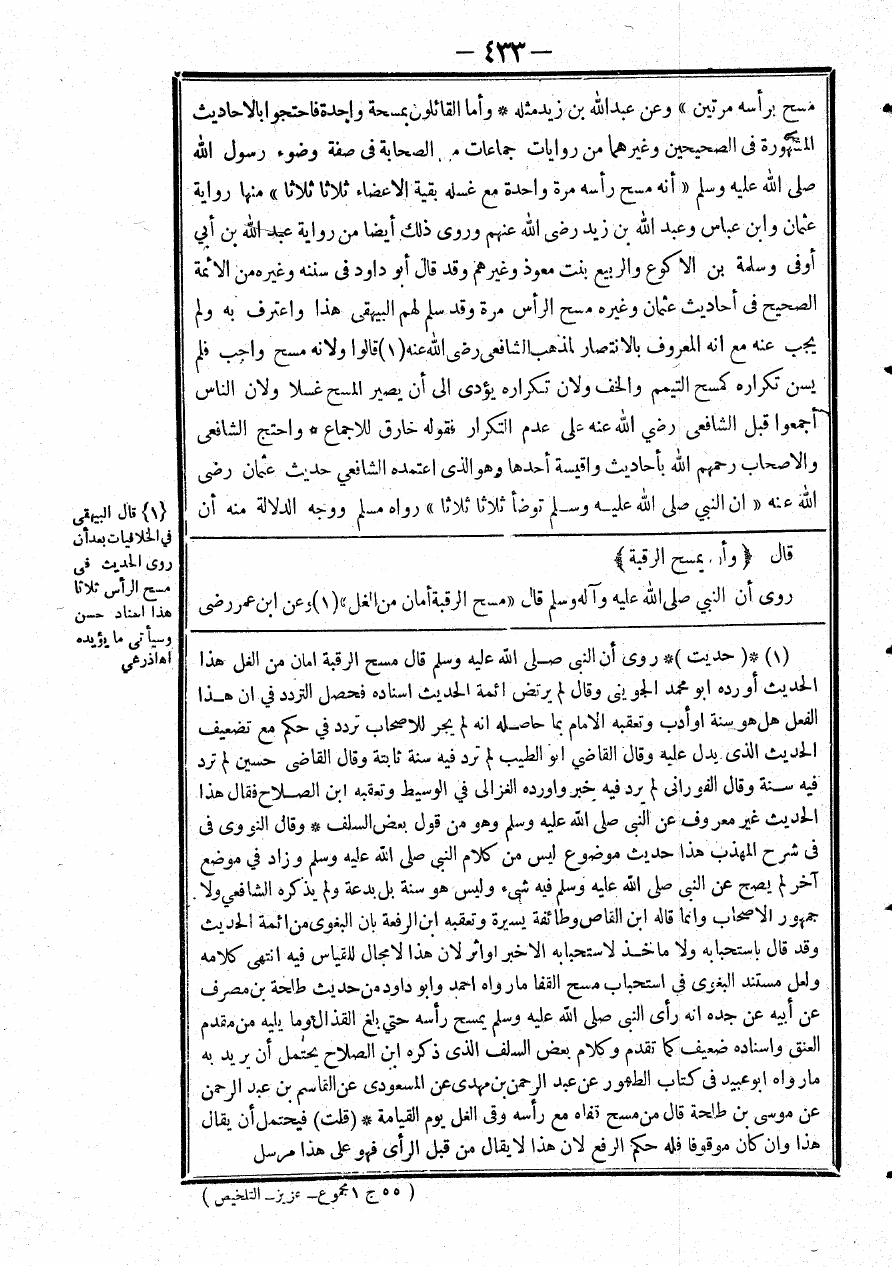 — ٤٣٣ —
مسح برأسه مرتين » وعن عبدالله بن زيد مثله * وأما القائلون بمسحة واحدة فاحتجوا بالاحاديث
المشهورة فى الصحيحين وغيرهما من روايات جماعات من الصحابة فى صفة وضوء رسول الله
صلى الله عليه وسلم « أنه مسح رأسه مرة واحدة مع غسله بقية الاعضاء ثلاثا ثلاثا » منها رواية
عثمان وابن عباس وعبد الله بن زيد رضى الله عنهم وروى ذلك أيضا من رواية عبد الله بن أبي
أوفى وسلمة بن الأكوع والربيع بنت معوذ وغيرهم وقد قال أبو داود فى سننه وغيره من الائمة
الصحيح فى أحاديث عثمان وغيره مسح الرأس مرة وقد سلم لهم البيهقى هذا واعترف به ولم
يجب عنه مع انه المعروف بالانتصار لمذهب الشافعى رضى الله عنه (١) قالوا ولانه مسح واجب فلم
يسن تكراره كمسح التيمم والخف ولان تكراره يؤدى الى أن يصير المسح غسلا ولان الناس
أجمعوا قبل الشافعى رضي الله عنه على عدم التكرار فقوله خارق للاجماع * واحتج الشافعى
والاصحاب رحمهم الله بأحاديث واقيسة أحدها وهو الذى اعتمده الشافعي حديث عثمان رضى
الله عنه « ان النبي صلى الله عليه وسلم توضأ ثلاثا ثلاثا » رواه مسلم ووجه الدلالة منه أن
{١} قال البيهقى
في الخلافيات بعد أن
روى الحديث فى
مسح الرأس ثلاثا
هذا اسناد حسن
وسيأتى ما يؤيده
اه اذرعي
قال ﴿ وأن يمسح الرقبة ﴾
روى أن النبي صلى الله عليه وآله وسلم قال « مسح الرقبة أمان من الغل » (١) وعن ابن عمر رضى
(١) *( حديث )* روى أن النبى صلى الله عليه وسلم قال مسح الرقبة امان من الغل هذا
الحديث أورده ابو محمد الجوينى وقال لم يرتض ائمة الحديث اسناده فحصل التردد في ان هذا
الفعل هل هو سنة او أدب وتعقبه الامام بما حاصله انه لم يجر للاصحاب تردد في حكم مع تضعيف
الحديث الذى يدل عليه وقال القاضي ابو الطيب لم ترد فيه سنة ثابتة وقال القاضى حسين لم ترد
فيه سنة وقال الفورانى لم يرد فيه خبر واورده الغزالى في الوسيط وتعقبه ابن الصلاح فقال هذا
الحديث غير معروف عن النبى صلى الله عليه وسلم وهو من قول بعض السلف * وقال النووى فى
فى شرح المهذب هذا حديث موضوع ليس من كلام النبى صلى الله عليه وسلم وزاد في موضع
آخر لم يصح عن النبى صلى الله عليه وسلم فيه شىء وليس هو سنة بل بدعة ولم يذكره الشافعي ولا
جمهور الاصحاب وانما قاله ابن القاص وطائفة يسيرة وتعقبه ابن الرفعة بان البغوى من ائمة الحديث
وقد قال باستحبابه ولا ماخذ لاستحبابه الا خبر او اثر لان هذا لا مجال للقياس فيه انتهى كلامه
ولعل مستند البغوى فى استحباب مسح القفا ما رواه احمد وابو داود من حديث طلحة بن مصرف
عن أبيه عن جده انه رأى النبى صلى الله عليه وسلم يمسح رأسه حتي بلغ القذال وما يليه من مقدم
العنق واسناده ضعيف كما تقدم وكلام بعض السلف الذى ذكره ابن الصلاح يحتمل أن يريد به
ما رواه ابو عبيد فى كتاب الطهور عن عبد الرحمن بن مهدى عن المسعودى عن القاسم بن عبد الرحمن
عن موسى بن طلحة قال من مسح قفاه مع رأسه وقى الغل يوم القيامة * (قلت) فيحتمل أن يقال
هذا وان كان موقوفا فله حكم الرفع لان هذا لا يقال من قبل الرأى فهو على هذا مرسل
( ٥٥ ج ١ مجموع ـ عزيز ـ التلخيص )